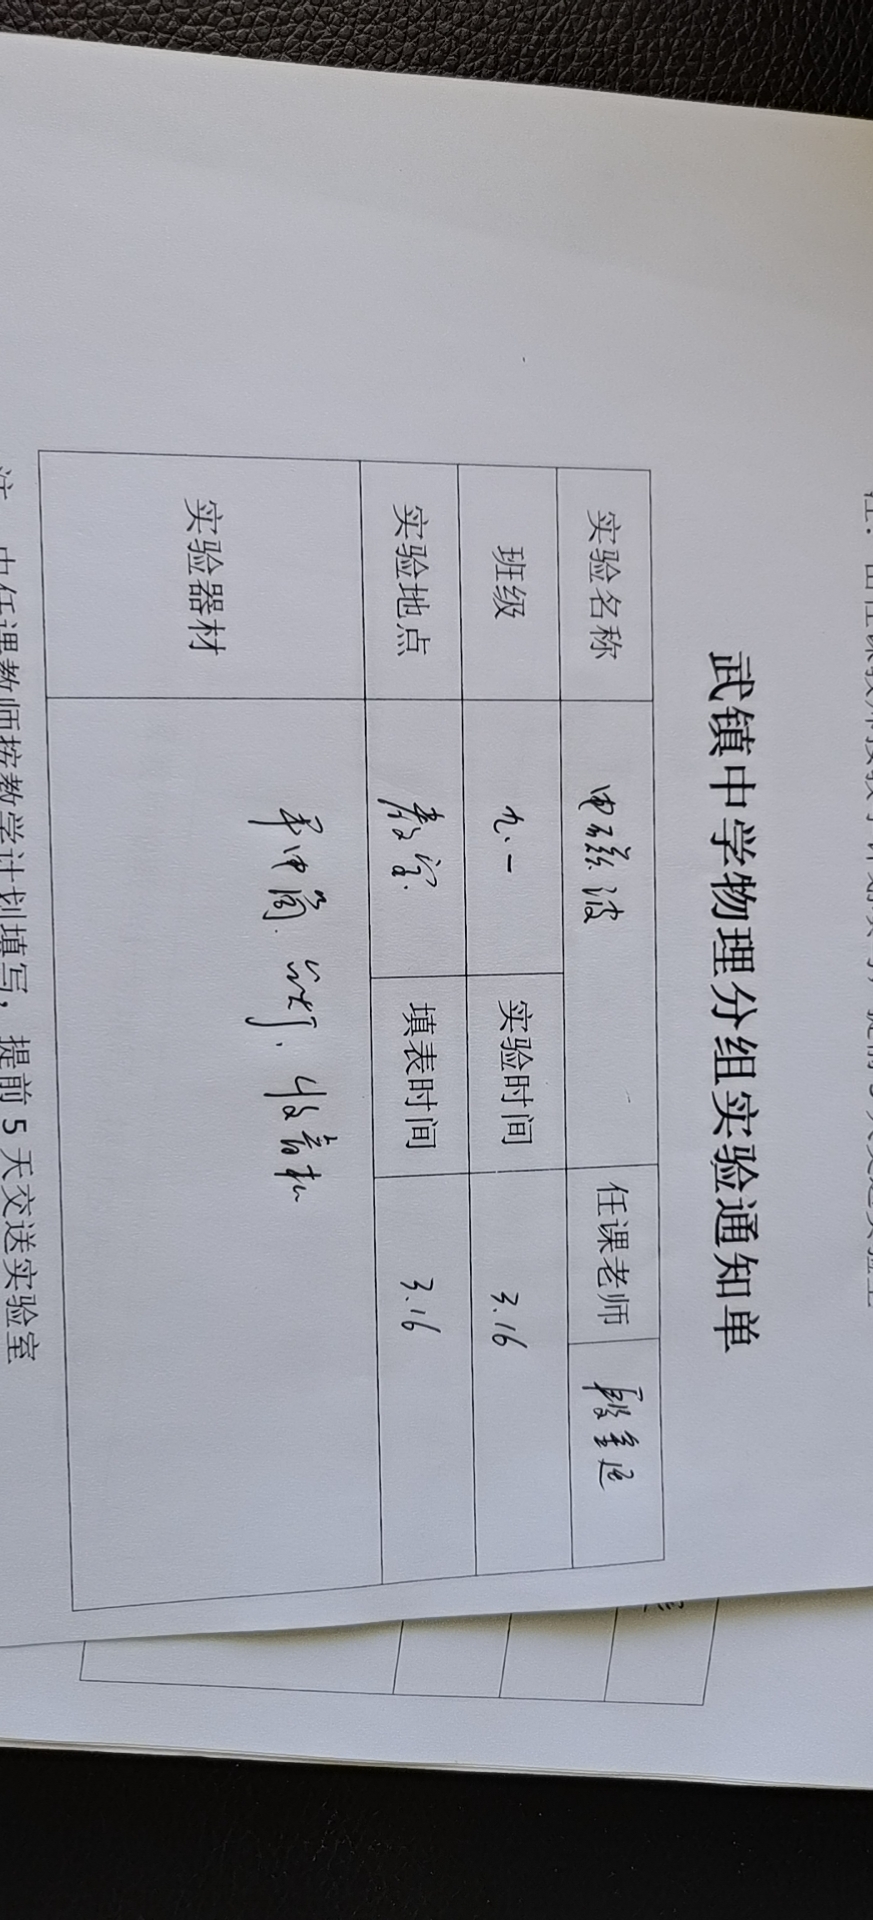 武镇中学物理分组实验通知单
实验名称 电磁波 任课老师
班级 九.一 实验时间 3.16
实验地点 教室 填表时间 3.16
实验器材 收音机
注 由任课教师按教学计划填写，提前5天交送实验室